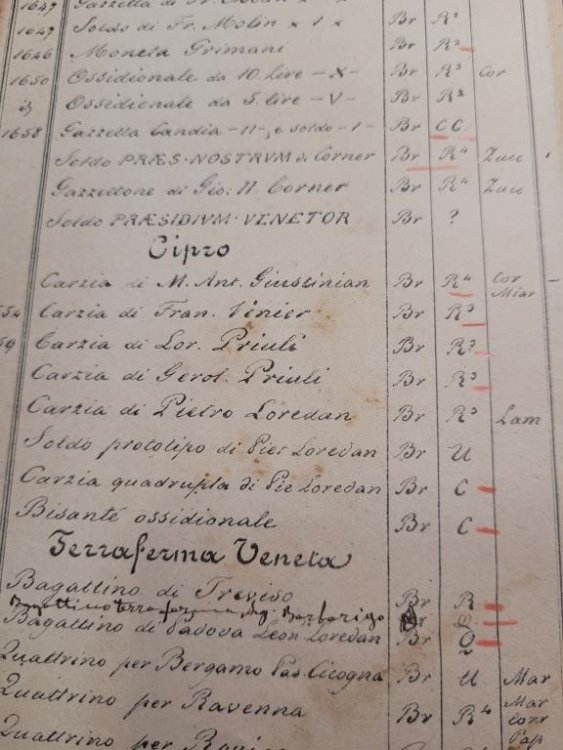 1647 Gazzetta di Fr. Molin x 11 x Br R²
1647 Soldo di Fr. Molin x 1 x Br R²
1646 Moneta Grimani Br R²
1650 Ossidionale da 10 lire - X - Br R³ Cor
Ossidionale da 5 lire - V - Br R²
1658 Gazzetta Candia - II -, e soldo - I - Br CC
Soldo PRÆS·NOSTRVM di Corner Br R⁴ Zucc
Gazzettone di Gio: II Corner Br R⁴ Zucc
Soldo PRÆSIDIVM·VENETOR Br ?
Cipro
Carzia di M. Ant. Giustinian Br R⁴ Cor
Miar
54 Carzia di Fran. Venier Br R³
59 Carzia di Lor. Priuli Br R³
Carzia di Gerol. Priuli Br R³
Carzia di Pietro Loredan Br R³ Lam
Soldo prototipo di Pier Loredan Br U
Carzia quadrupla di Pie Loredan Br C
Bisante ossidionale Br C
Terraferma Veneta
Bagattino di Treviso Br R
Bagattino terraferma Ag. Barbarigo Br
Bagattino di Padova Leon Loredan Br
Quattrino per Bergamo Pas. Cicogna Br U Mar
Quattrino per Ravenna Br R⁴ Mar
Conr
Pap
Quattrino per Br